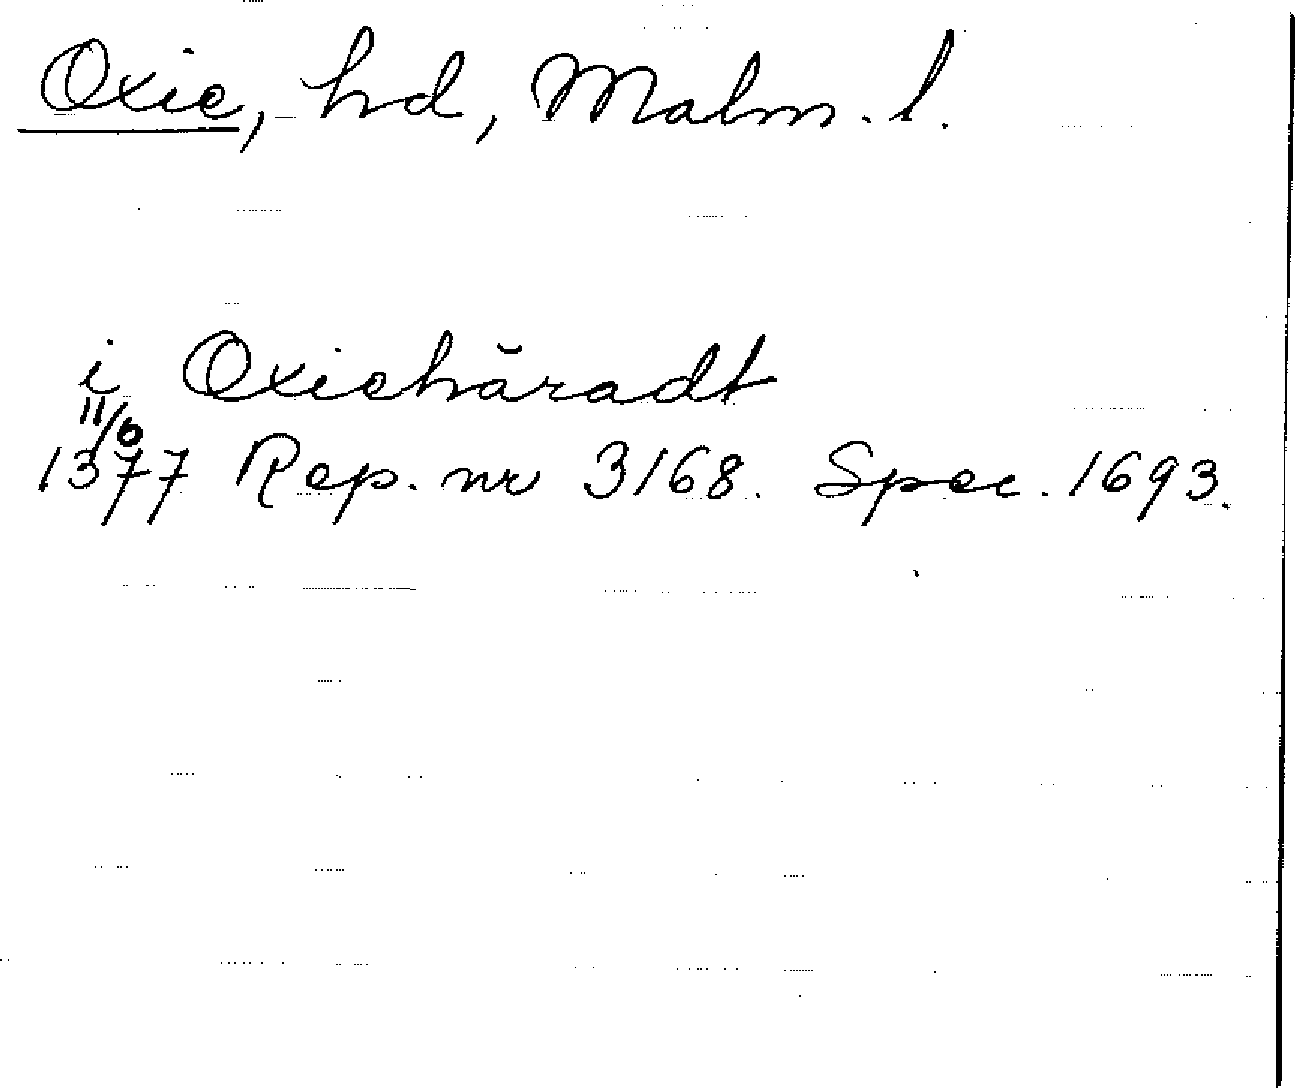 Oxie, hd, Malm. l.
i Oxiehăradt
11/6
1377 Rep. nr 3168. Spec. 1693.